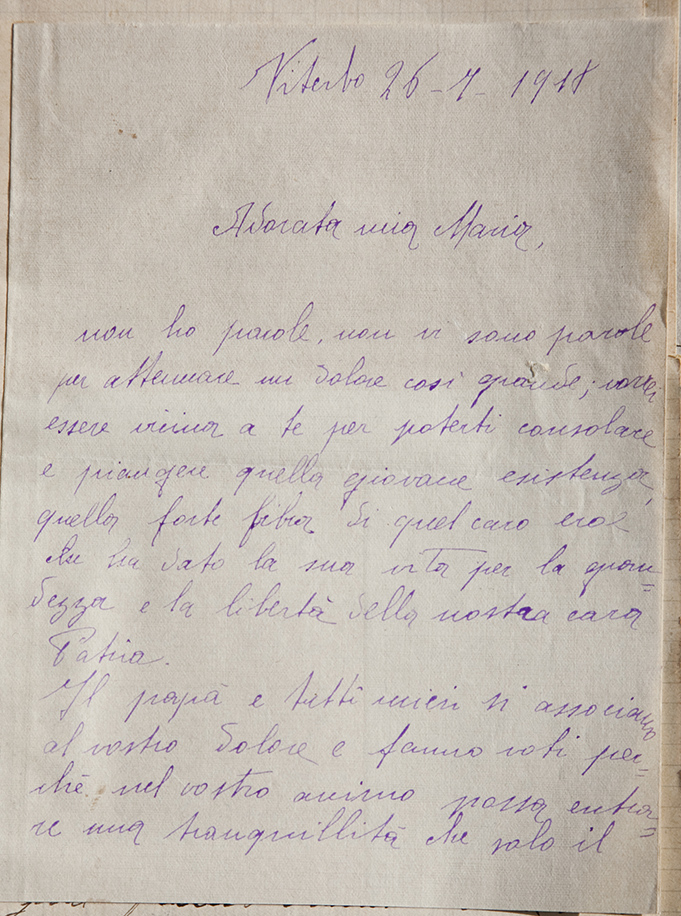 Viterbo 26-7-1918
Adorata mia Maria,
non ho parole, non vi sono parole
per attenuare un dolore così grande; vorrei
essere vicina a te per poterti consolare
e piangere quella giovane esistenza,
quella forte fibra di quel caro eroe
che ha dato la sua vita per la gran=
dezza e la libertà della nostra cara
Patria.
Il papà e tutti miei si associano
al vostro dolore e fanno voti per=
chè nel vostro animo possa entra=
re una tranquillità che solo il